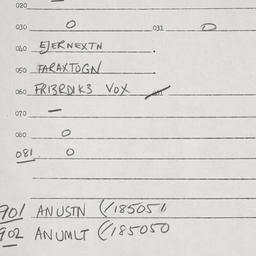 020
030 0 031 0
040 EJERNEXTN
050 FARAXTOGN
060 FRI3RDIK3 VOX
070 —
080 0
081 0
901 ANUSTN (/185051
902 ANUMLT (/185050